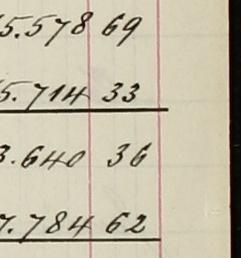 5.578 69
5.714 33
3.640 36
7.784 62